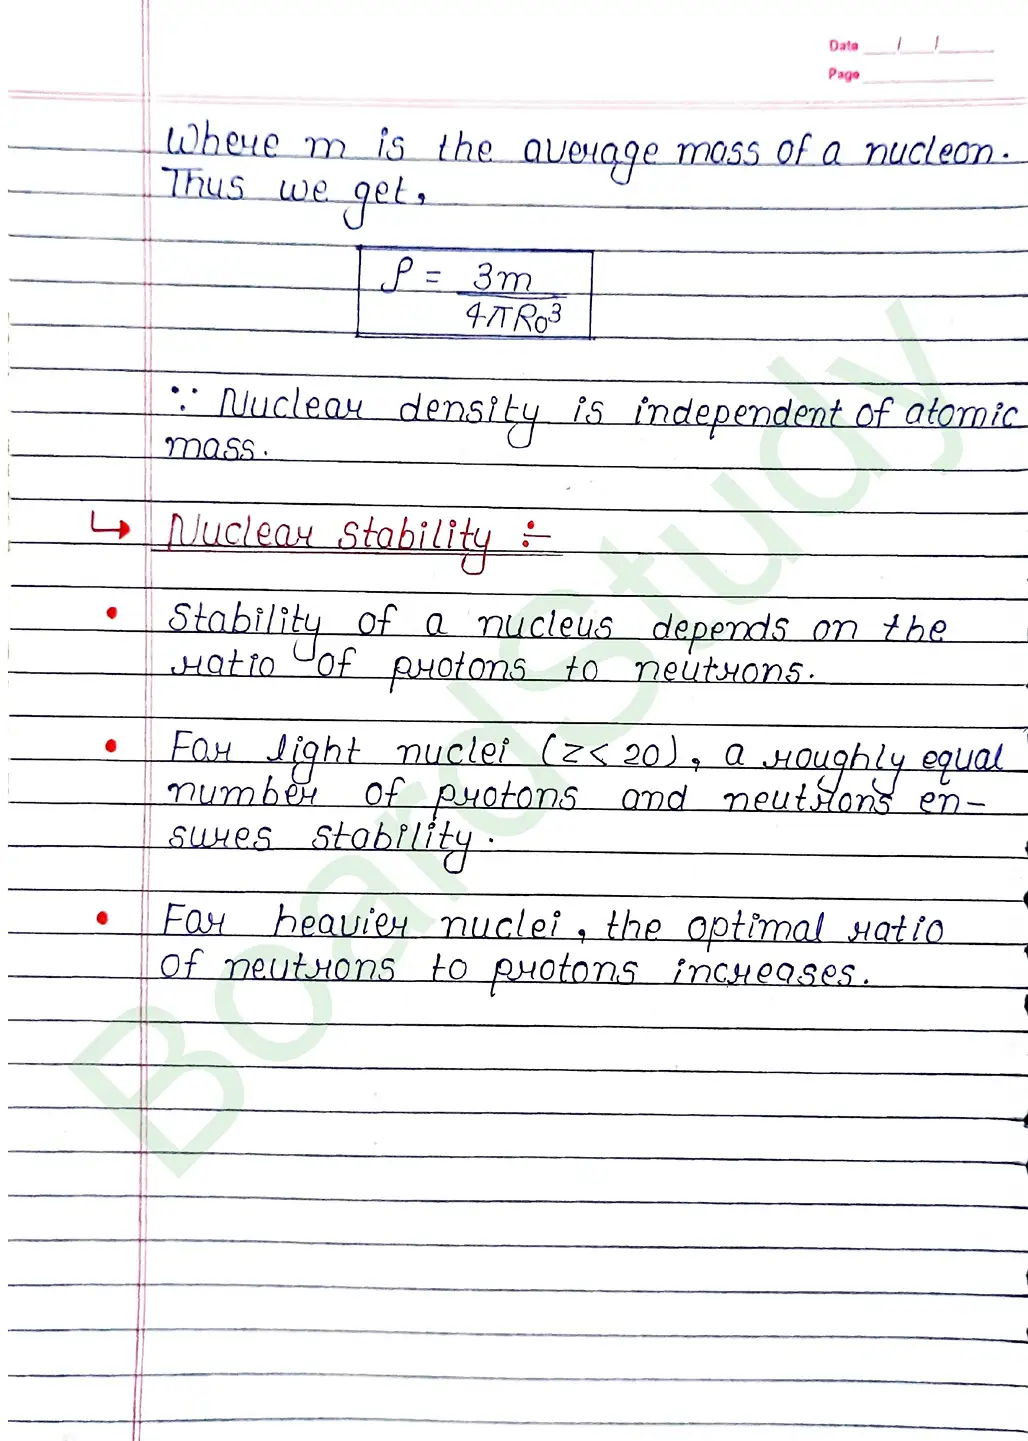 Date / /
Page
Where m is the average mass of a nucleon.
Thus we get,
ρ = 3m
4πR₀³
∵ Nuclear density is independent of atomic
mass.
↳ Nuclear Stability ÷
• Stability of a nucleus depends on the
ratio of protons to neutrons.
• For light nuclei (z < 20), a roughly equal
number of protons and neutrons en-
sures stability.
• For heavier nuclei, the optimal ratio
of neutrons to protons increases.
BoardStudy